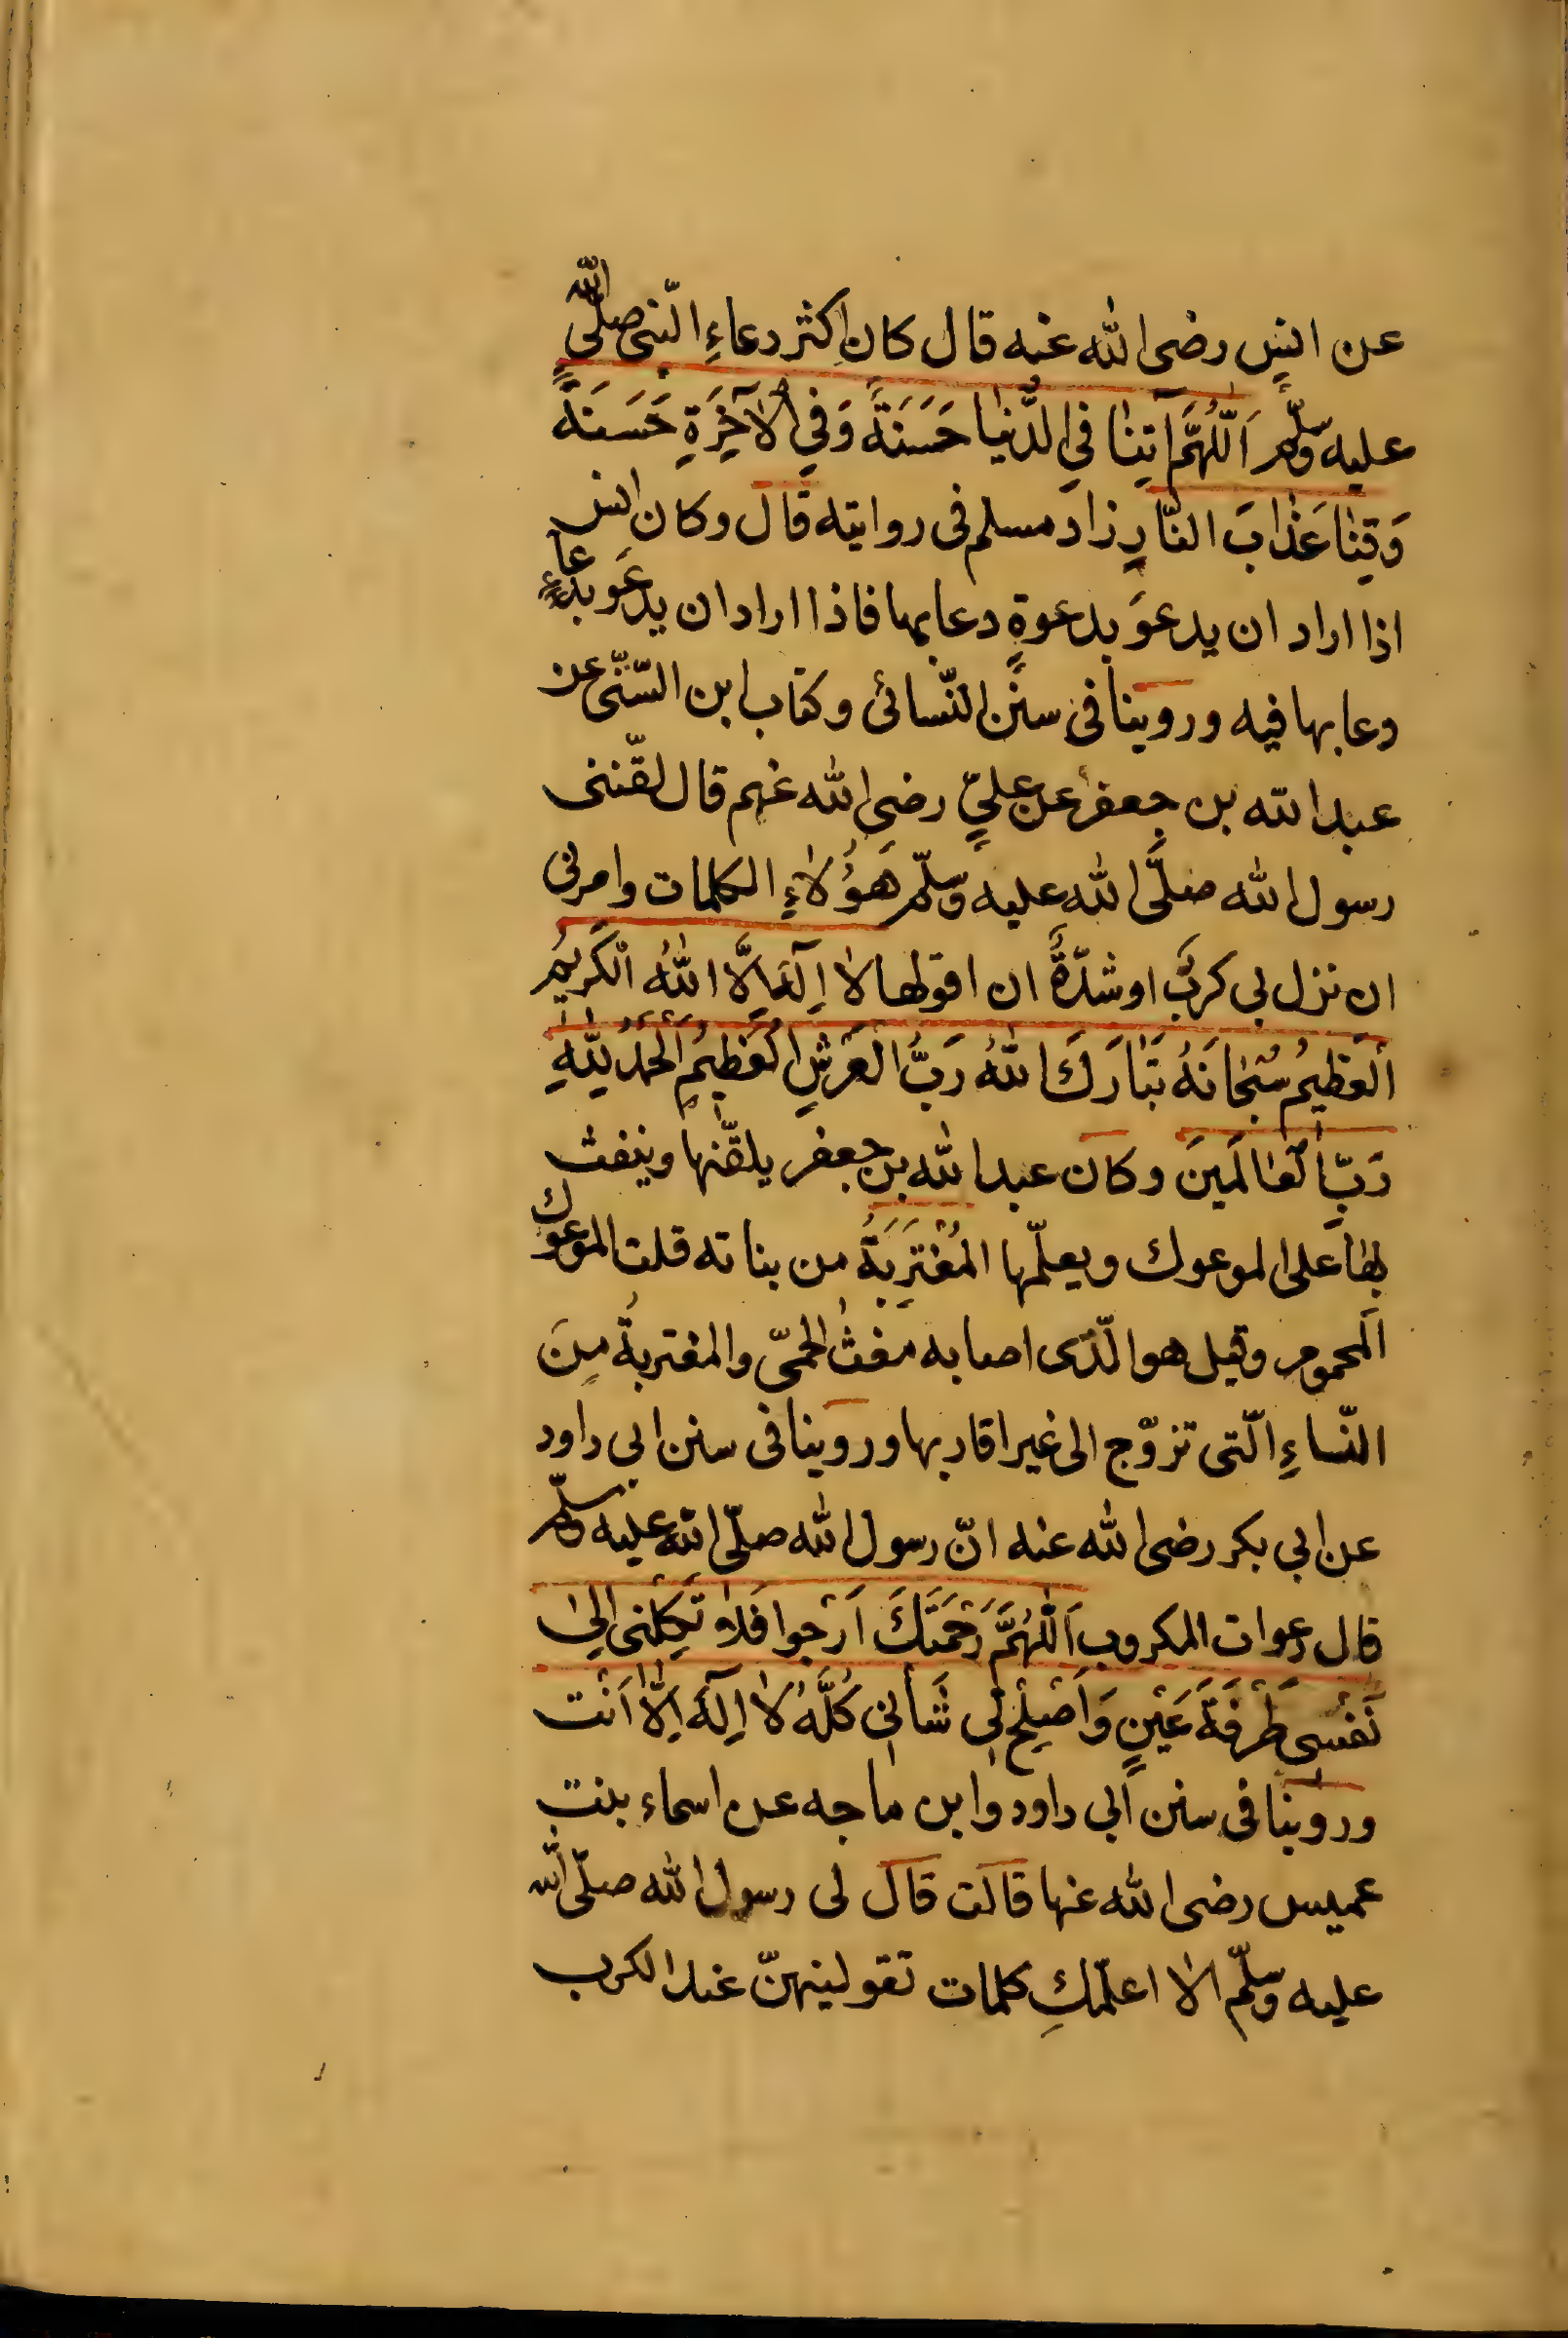 عن انسٍ رضى الله عنه قال كان اكثر دعاءِ النّبى صلّى الله
عليه وسلّم اَللّٰهُمَّ آتِنٰا فِى الدُّنْيٰا حَسَنَةً وَفِى الْاٰخِرَةِ حَسَنَةً
وَقِنٰا عَذٰابَ النّٰارِ زاد مسلم فى روايته قال وكان انس
اذا اراد ان يدعوَ بدعوةٍ دعا بها فاذا اراد ان يدعَو بدعاءٍ
دعا بها فيه وروينا فى سنن النّسائى وكتاب ابن السّنّى عن
عبد الله بن جعفر عن علىٍّ رضى الله عنهم قال لقّننى
رسول الله صلَّى الله عليه وسلّم هَؤُلاٰءِ الكلمات وامرنى
ان نزل بى كربٌ او شدّةٌ ان اقولها لاٰ اِلٓهَ اِلَّا اللّٰهُ الْكَرِيمُ
اَلْعَظِيمُ سُبْحٰانَهُ تَبٰارَكَ اللّٰهُ رَبُّ الْعَرْشِ الْعَظِيمِ اَلْحَمْدُ لِلّٰهِ
رَبِّ الْعٰالَمِينَ وكان عبد الله بن جعفر يلقّنها وينفث
بها على الموعوك ويعلّمها الْمُغْتَرِبَةَ من بناته قلت الموعوك
اَلمحموم وقيل هو الّذى اصابه مغثُ الحمّى والمغتربةُ مِنَ
النّساءِ الّتى تزوّج الى غير اقاربها وروينا فى سنن ابى داود
عن ابى بكر رضى الله عنه انّ رسول الله صلّى الله عليه وسلّم
قال دعوات المكروب اَللّٰهُمَّ رَحْمَتَكَ اَرْجوا فَلاٰ تَكِلْنى اِلىٰ
نَفْسى طَرْفَةَ عَيْنٍ وَاَصْلِحْ لى شَأنى كُلَّهُ لاٰ اِلٓهَ اِلّٰا اَنْت
وروينا فى سنن ابى داود وابن ماجه عن اسماء بنت
عميس رضى الله عنها قالت قال لى رسول الله صلّى الله
عليه وسلّم الا اعلّمكِ كلمات تقولينهنّ عند الكرب